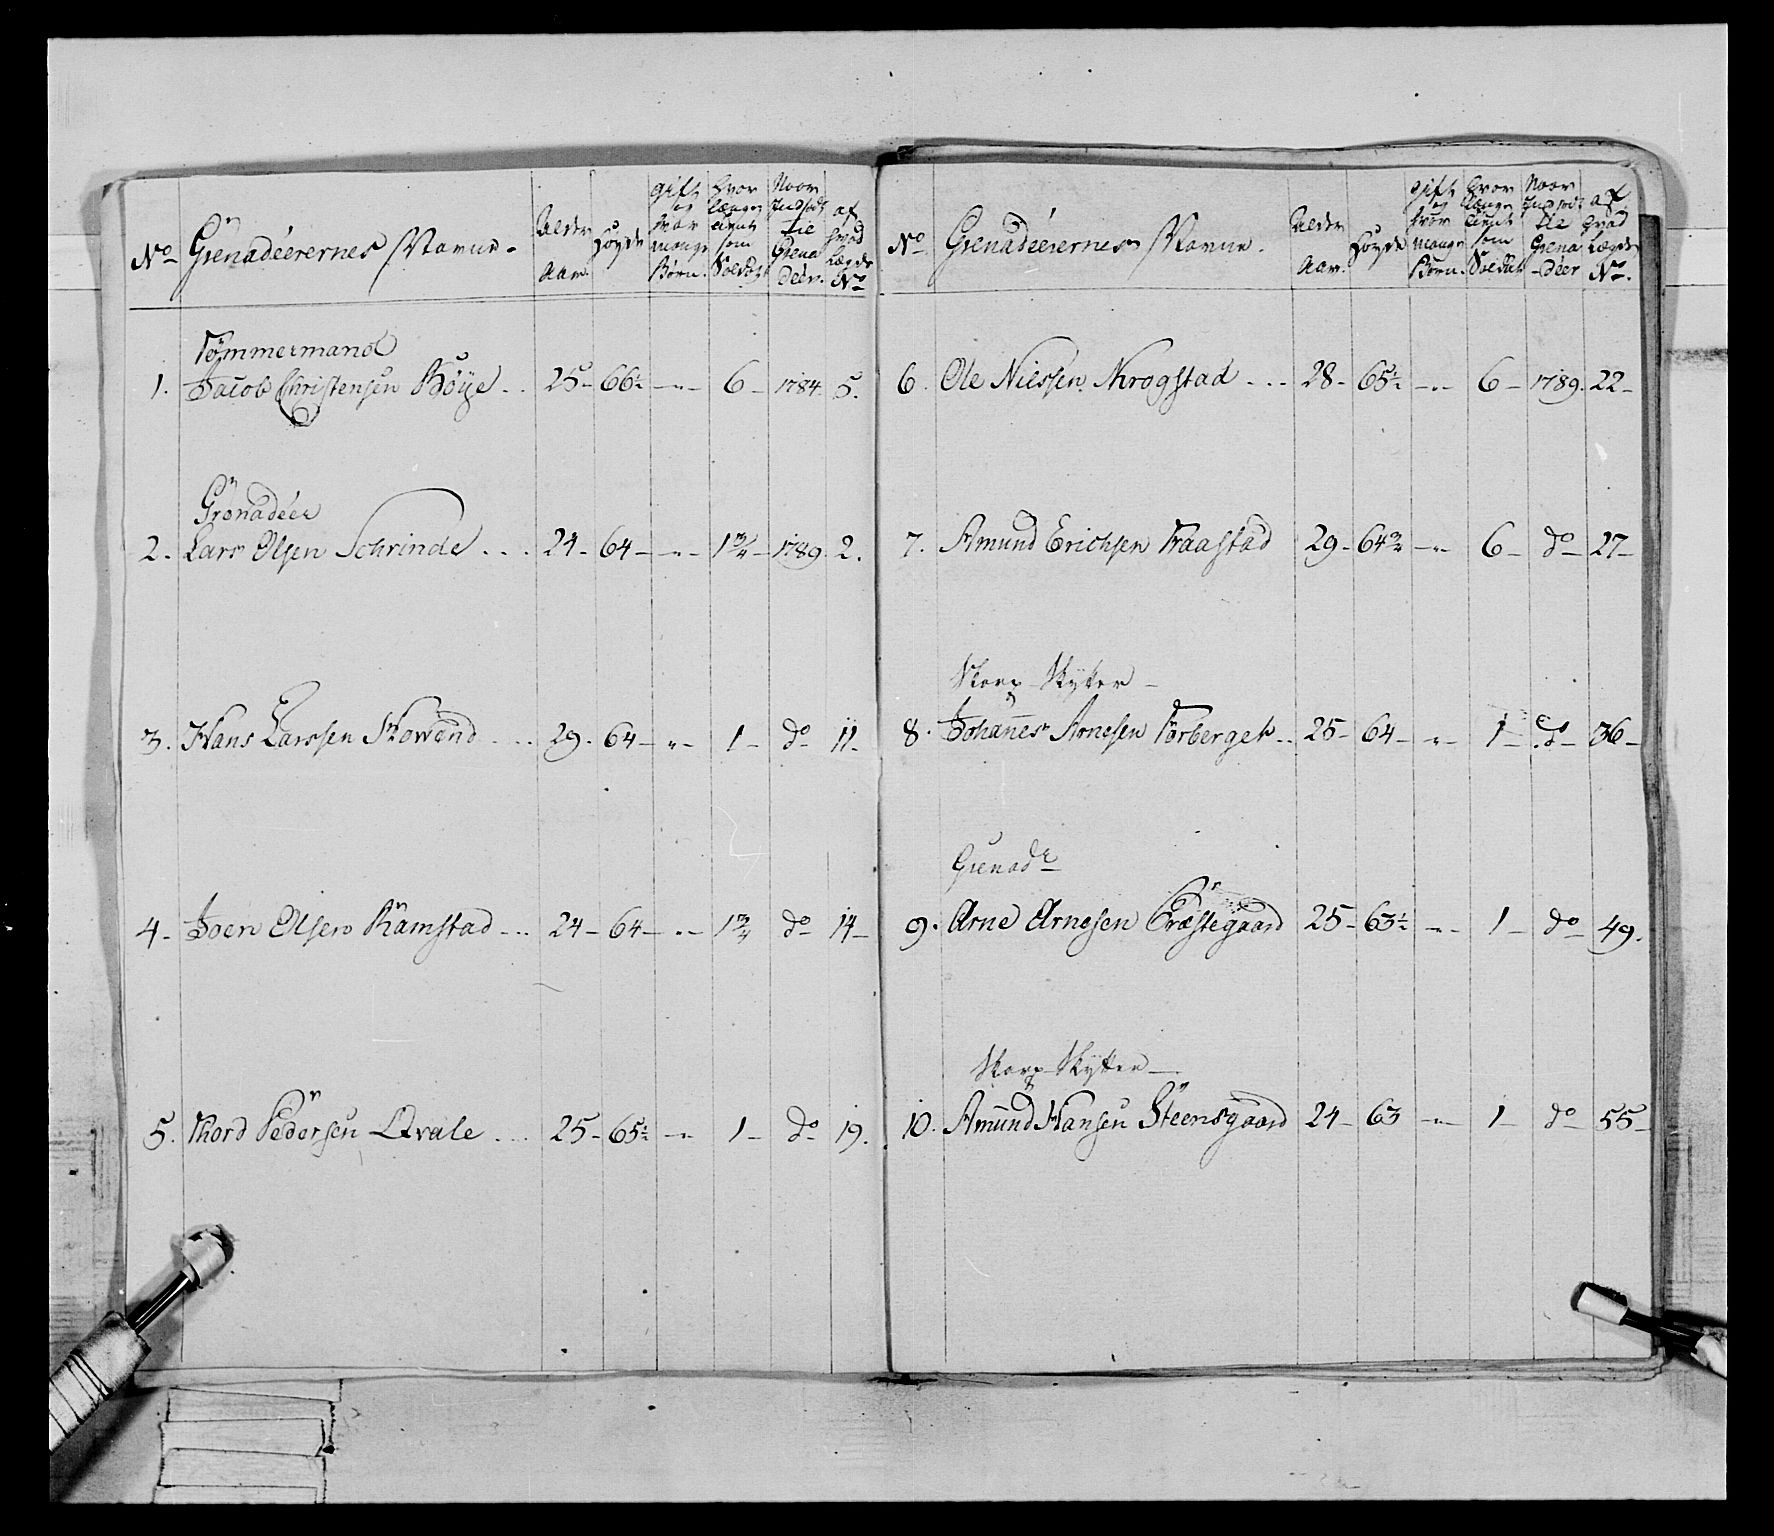 No Grenadeerernes Navne. Alder Aar. Høyde gift og hvor mange Børn. hvor længe tient som Soldat Naar Indsadt til Grenadeer. af hvad Lægds No
Tømmermand
1. Jacob Christensen Böÿe .. 25- 66½ -"- 6- 1784. 5.
Grenadeer
2. Lars Olsen Schrinde ... 24- 64- -"- 1¾- 1789. 2.
3. Hans Larssen Skowend ... 29- 64- "- 1- do 11-
4. Joen Olsen Ramstad ... 24- 64- "- 1¾ do 14-
5. Thord Pedersen Qvale ... 25- 65½ -"- 1- do 19.
No Grenadeerernes Navne. Alder Aar. Høyde gift og hvor mange Børn. hvor længe tient som Soldat Naar Indsadt til Grenadeer af hvad Lægds No.
6. Ole Nielsen Krogstad ... 28- 65½ -"- 6- 1789. 22-
7. Amund Erichsen Fraastad 29- 64¾ -"- 6- do 27-
Skarp Skytter-
8. Johannes Arnesen Torberget .. 25- 64- -"- 1- do 36-
Grenadr
9. Arne Arnesen Præstegaard 25- 63½ -"- 1- do 49.
Skarp Skytter-
10. Amund Hansen Steensgaard 24- 63 -"- 1- do 55-